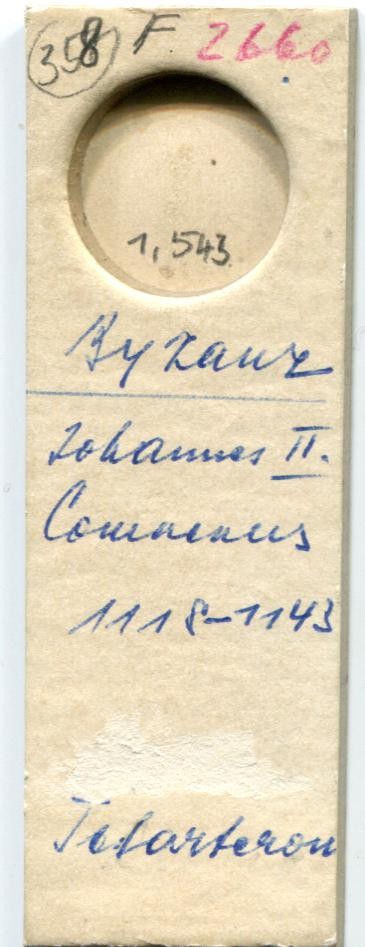 358 F 2660
1,543
Byzanz
Johannes II.
Comnenus
1118-1143
Tetarteron